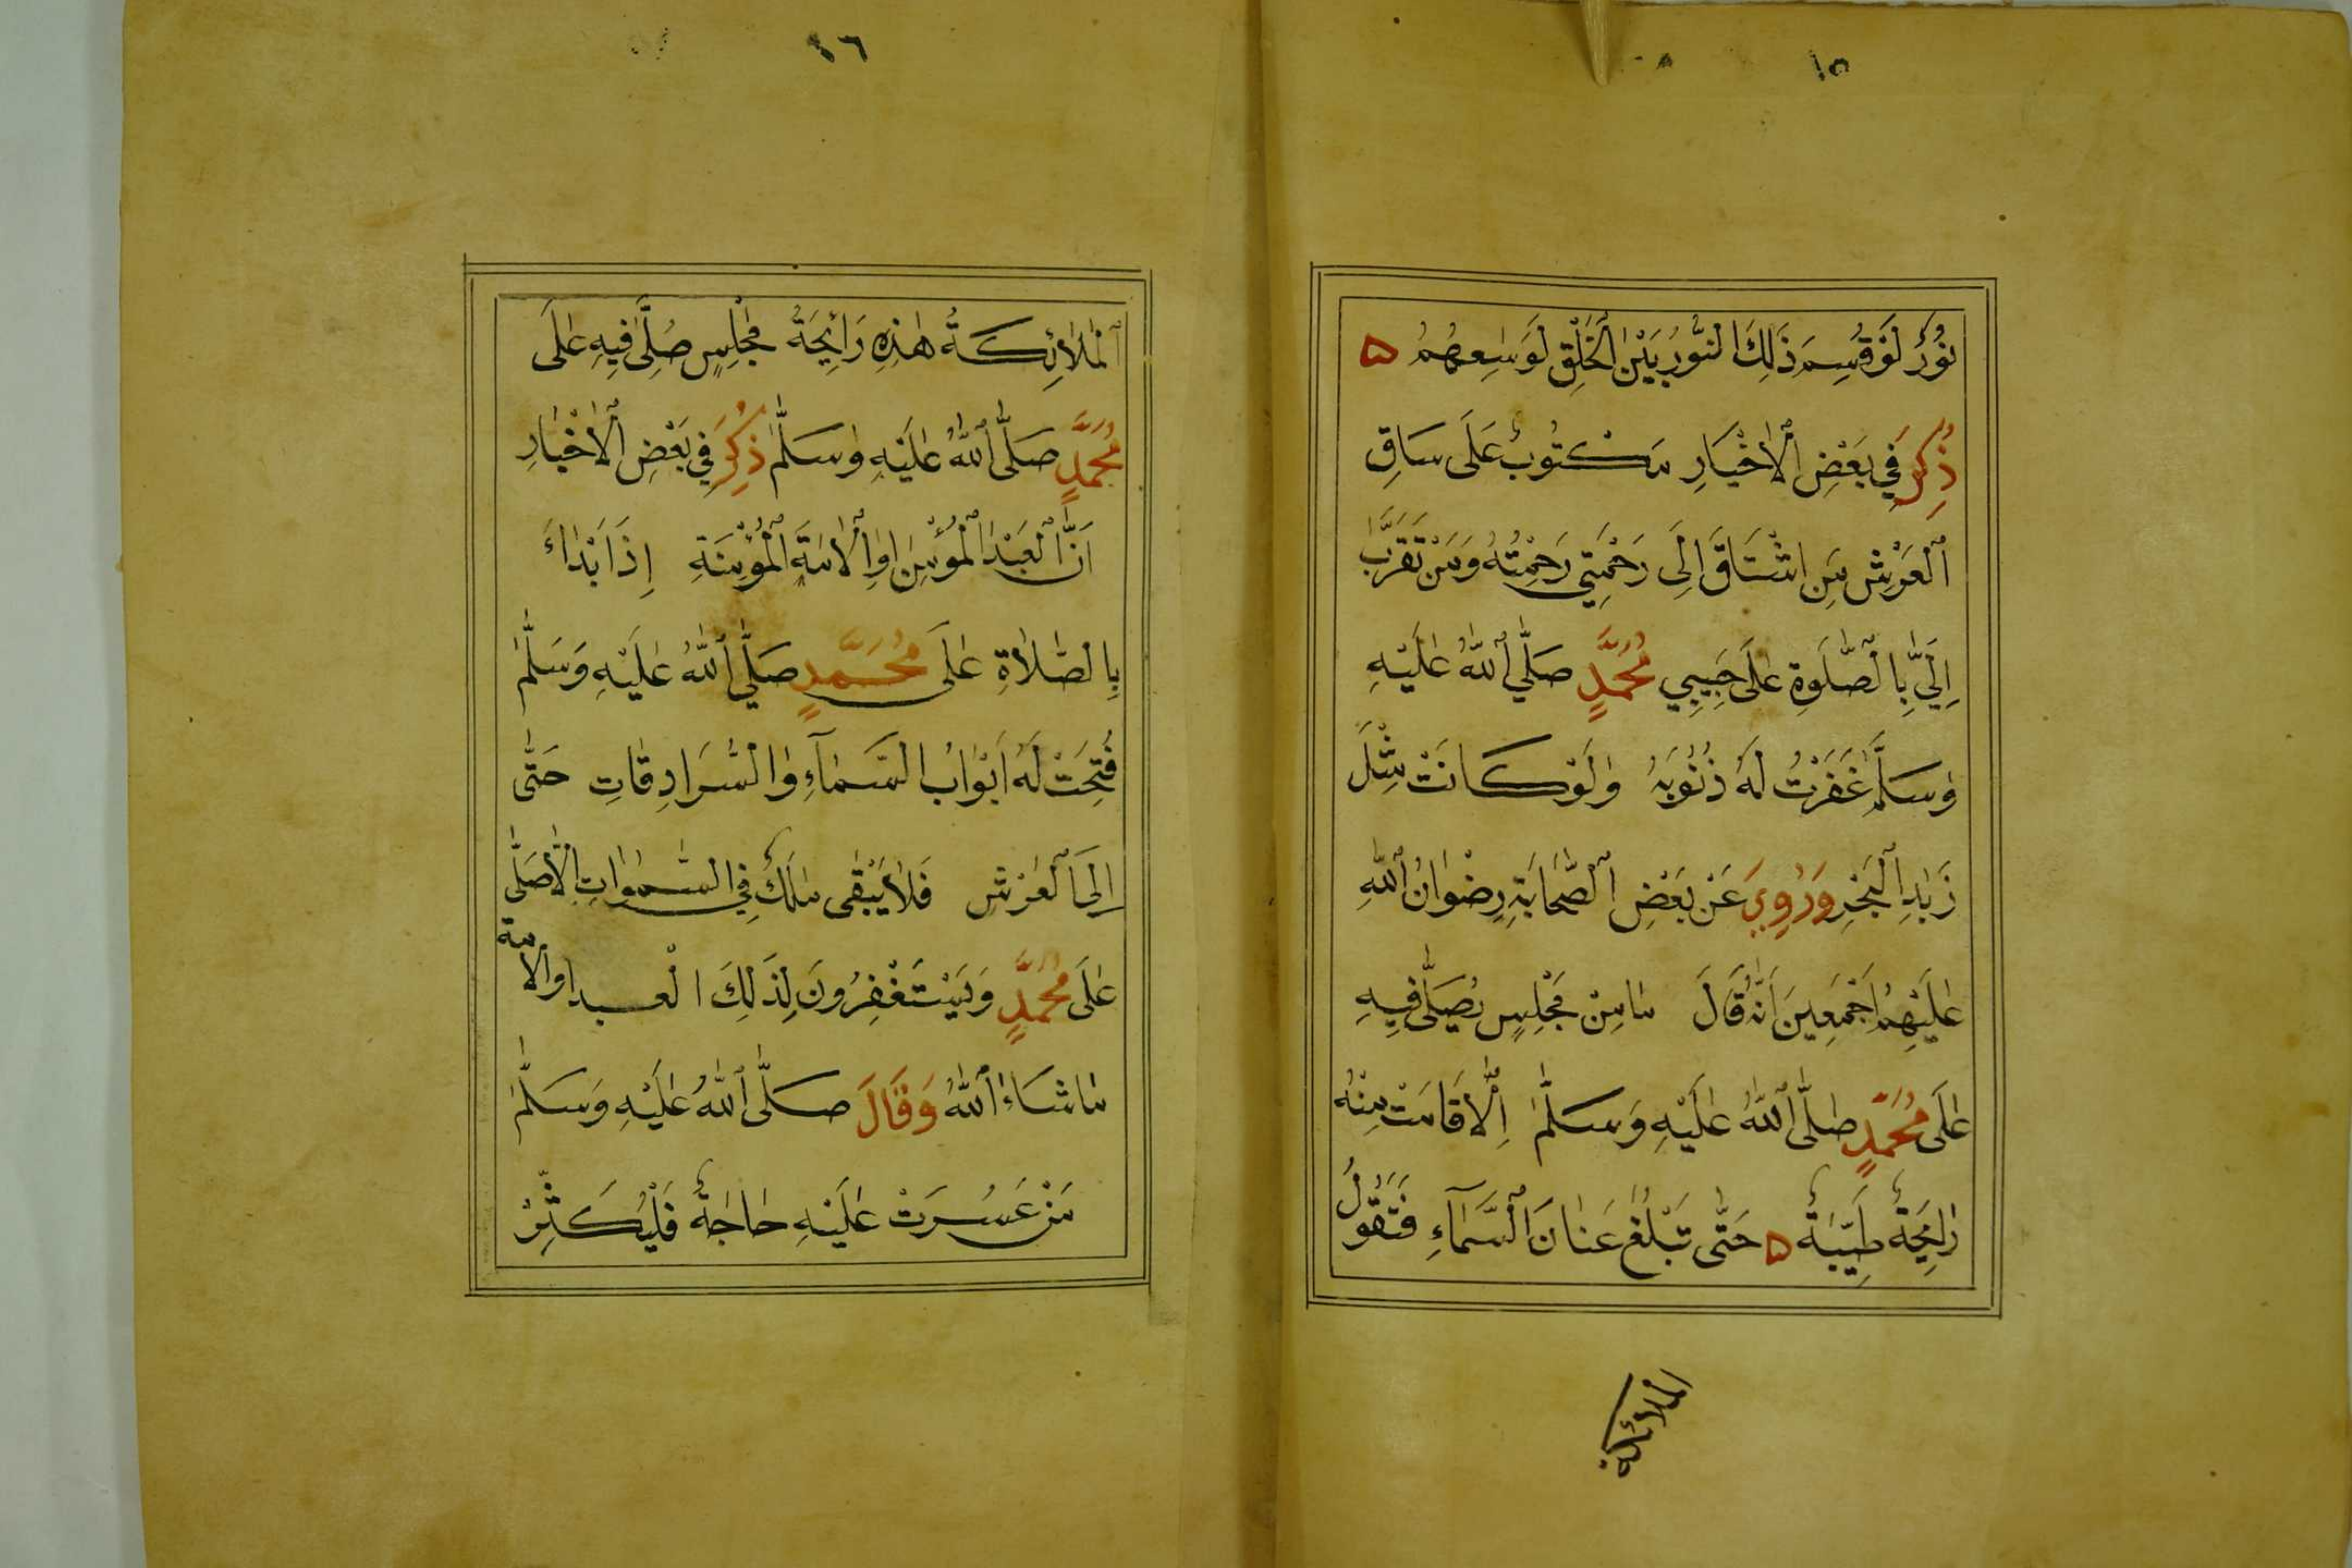 ١٥
نُورٌ لَوْ قُسِمَ ذَلِكَ النُّورُ بَيْنَ الْخَلْقِ لَوَسِعَهُمْ ۵
ذُكِرَ فِي بَعْضِ الْأَخْبَارِ مَكْتُوبٌ عَلَى سَاقِ
الْعَرْشِ مَنِ اشْتَاقَ إِلَى رَحْمَتِي رَحِمْتُهُ وَمَنْ تَقَرَّبَ
إِلَيَّ بِالصَّلَوةِ عَلَى حَبِيبِي مُحَمَّدٍ صَلَّى اللَّهُ عَلَيْهِ
وَسَلَّمَ غَفَرْتُ لَهُ ذُنُوبَهُ وَلَوْ كَانَتْ مِثْلَ
زَبَدِ الْبَحْرِ وَرُوِيَ عَنْ بَعْضِ الصَّحَابَةِ رِضْوَانُ اللَّهِ
عَلَيْهِمْ أَجْمَعِينَ أَنَّهُ قَالَ مَا مِنْ مَجْلِسٍ يُصَلَّى فِيهِ
عَلَى مُحَمَّدٍ صَلَّى اللَّهُ عَلَيْهِ وَسَلَّمَ إِلَّا قَامَتْ مِنْهُ
رَايِحَةٌ طَيِّبَةٌ ۵ حَتَّى تَبْلُغَ عَنَانَ السَّمَآءِ فَتَقُولُ
الملائكة
١٦
الْمَلَائِكَةُ هَذِهِ رَائِحَةُ مَجْلِسٍ صُلِّيَ فِيهِ عَلَى
مُحَمَّدٍ صَلَّى اللَّهُ عَلَيْهِ وَسَلَّمَ ذُكِرَ فِي بَعْضِ الْأَخْبَارِ
أَنَّ الْعَبْدَ الْمُؤْمِنَ أَوِ الْأَمَةَ الْمُؤْمِنَةِ إِذَا بَدَاءَ
بِالصَّلَاةِ عَلَى مُحَمَّدٍ صَلَّى اللَّهُ عَلَيْهِ وَسَلَّمَ
فُتِحَتْ لَهُ أَبْوَابُ السَّمَآءِ وَالسُّرَادِقَاتِ حَتَّى
إِلَى الْعَرْشِ فَلَا يَبْقَى مَلَكٌ فِي السَّمَوَاتِ إِلَّا صَلَّى
عَلَى مُحَمَّدٍ وَيَسْتَغْفِرُونَ لِذَلِكَ الْعبد اوالامة
مَا شَاءَ اللَّهُ وَقَالَ صَلَّى اللَّهُ عَلَيْهِ وَسَلَّمَ
مَنْ عَسُرَتْ عَلَيْهِ حَاجَةٌ فَلْيُكَثِّرْ